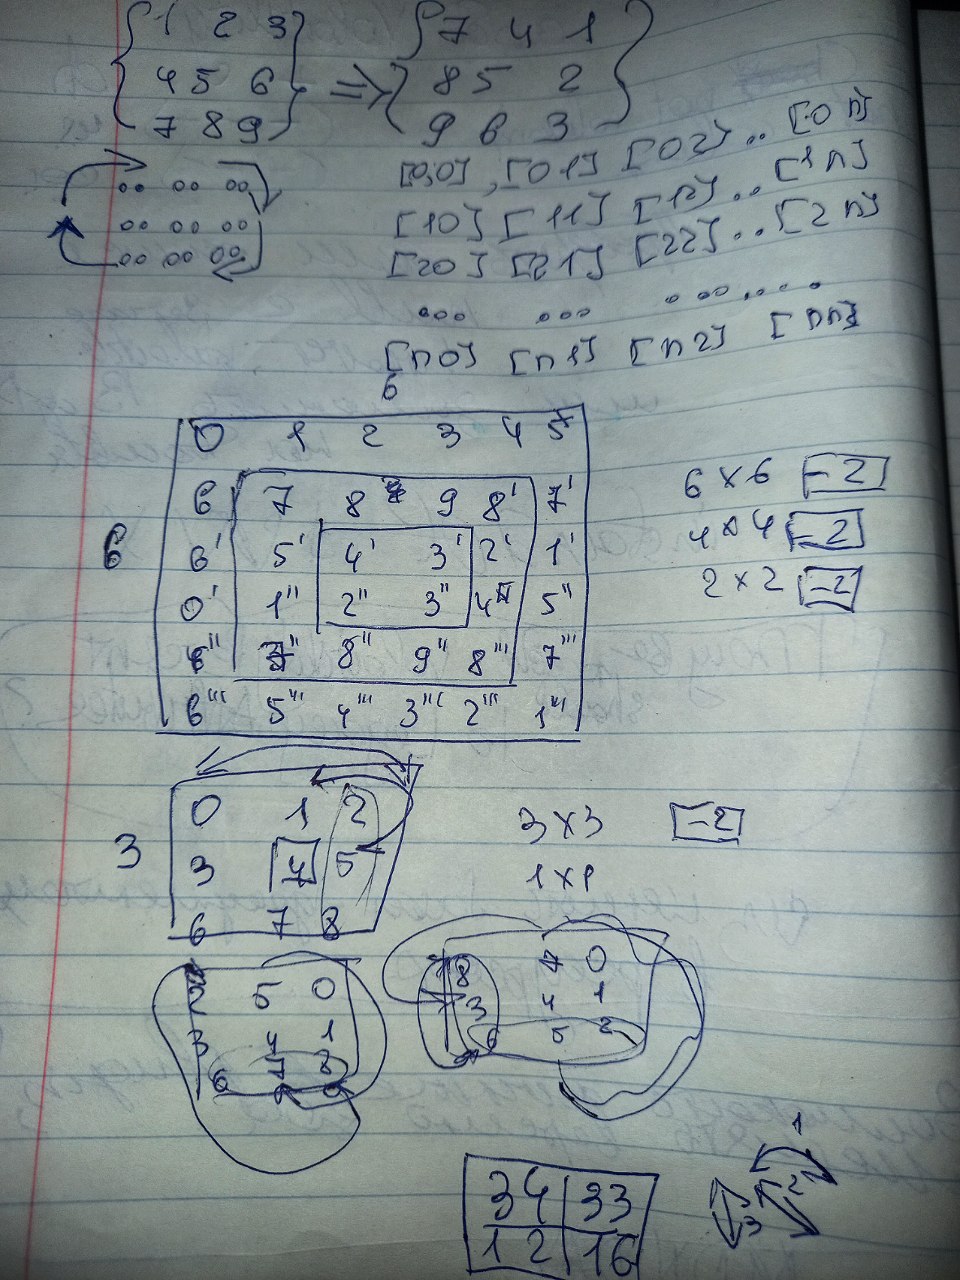 1 2 3
4 5 6
7 8 9
⇒
7 4 1
8 5 2
9 6 3
[0,0], [01] [02] .. [0n]
[10] [11] [12] .. [1n]
[20] [21] [22] .. [2n]
... ... ... ....
[n0] [n1] [n2] [nn]
6
0 1 2 3 4 5
6 7 8 9 8' 7'
6
6' 5' 4' 3' 2' 1'
0' 1'' 2'' 3'' 4'' 5''
8'' 9'' 8''' 7'''
6''' 5''' 4''' 3''' 2''' 1'''
6 x 6 -2
4 x 4 -2
2 x 2 -2
3
0 1 2
3 4 5
6 7 8
3 x 3 -2
1 x 1
2 5 0
3 4 1
6 7 8
8 7 0
3 4 1
6 5 2
34 33
12 16
1
2
3